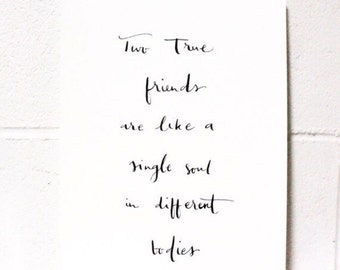 Two True
friends
are like a
single soul
in different
bodies